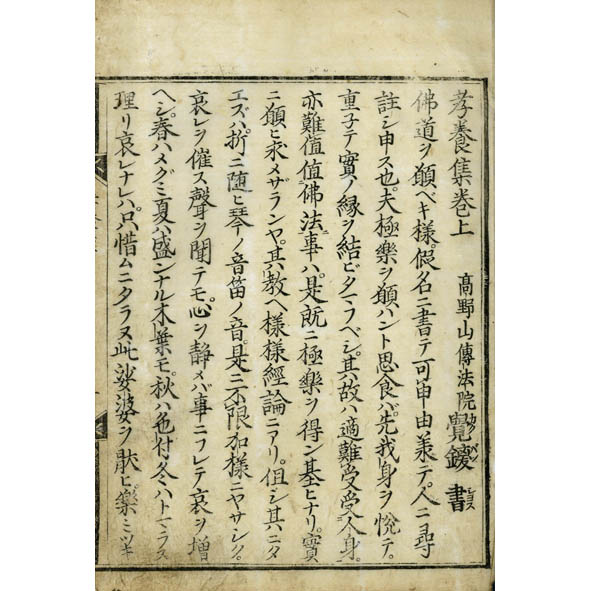 孝養集巻上　高野山傳法院覺鑁書
佛道ヲ願ベキ様。假名ニ書テ可申由羨テ。人ニ尋
註シ申ス也。夫極樂ヲ願ハント思食バ。先我身ヲ悦テ。
重子テ實ノ縁ヲ結ビタマフベシ。其故ハ適難受受人身。
亦難値値佛法ニ事ハ。是既ニ極樂ヲ得ン基ヒナリ。實
ニ願ヒ求メザランヤ。其教ヘ様様經論ニアリ。但シ其ニタ
エズハ。折ニ随ヒ琴ノ音笛ノ音。是ニ不限加様ニヤサシク。
哀レヲ催ス聲ヲ聞テモ。心ヲ静メバ事ニフレテ哀ヲ増
ヘシ。春ハメグミ夏ハ盛ンナル木葉モ。秋ハ色付冬ハトマラス
理リ哀レナレハ。只惜ムニタラヌ此娑婆ヲ厭ヒ。樂ミツキ